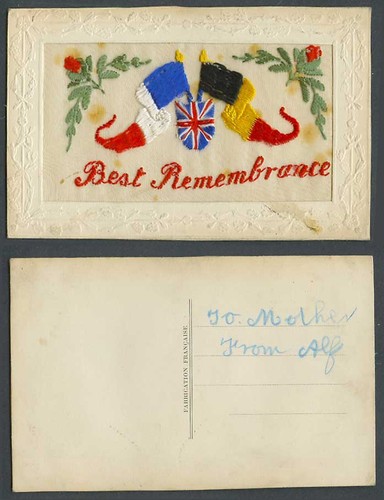 Best Remembrance
FABRICATION FRANÇAISE
To. Mother
From Alf